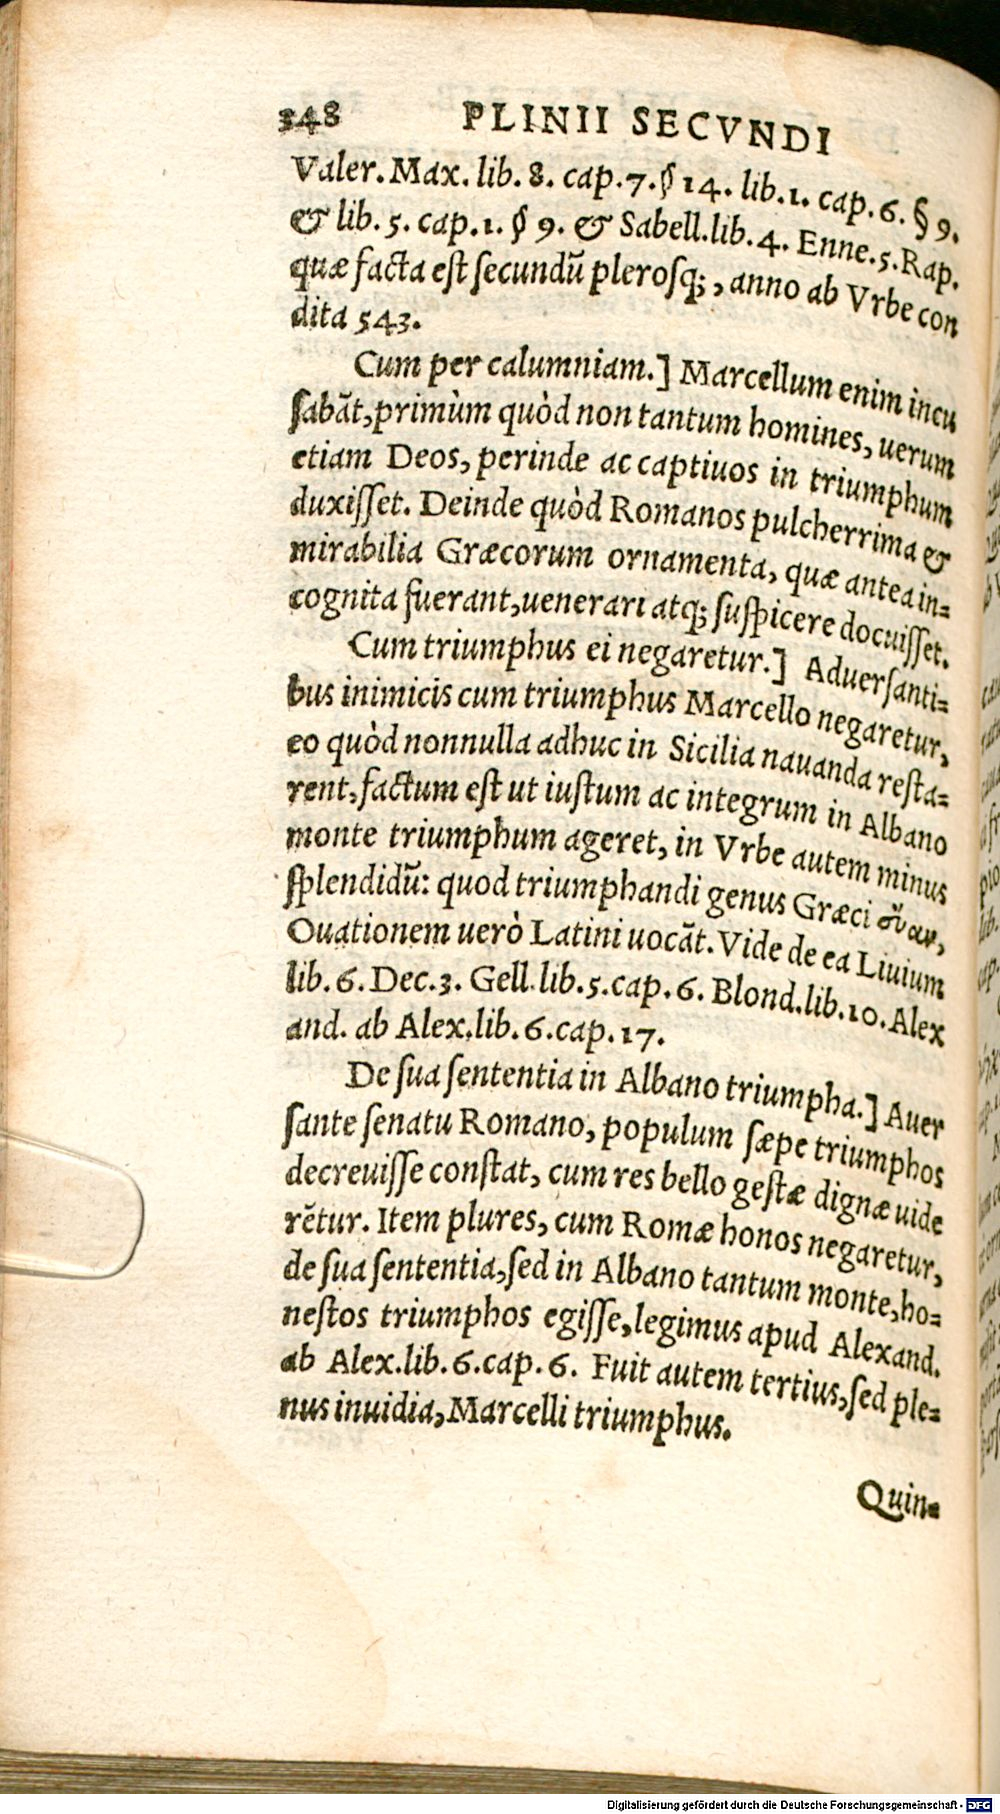 348 PLINII SECVNDI
Valer. Max. lib. 8. cap. 7. § 14. lib. 1. cap. 6. § 9.
& lib. 5. cap. 1. § 9. & Sabell. lib. 4. Enne. 5. Rap.
quæ facta est secundũ plerosq;, anno ab Vrbe con
dita 543.
Cum per calumniam.] Marcellum enim incu
sabãt, primùm quòd non tantum homines, uerum
etiam Deos, perinde ac captiuos in triumphum
duxisset. Deinde quòd Romanos pulcherrima &
mirabilia Græcorum ornamenta, quæ antea in-
cognita fuerant, uenerari atq; suspicere docuisset.
Cum triumphus ei negaretur.] Aduersanti-
bus inimicis cum triumphus Marcello negaretur,
eo quòd nonnulla adhuc in Sicilia nauanda resta-
rent, factum est ut iustum ac integrum in Albano
monte triumphum ageret, in Vrbe autem minus
splendidũ: quod triumphandi genus Græci
Ouationem uerò Latini uocãt. Vide de ea Liuium
lib. 6. Dec. 3. Gell. lib. 5. cap. 6. Blond. lib. 10. Alex
and. ab Alex. lib. 6. cap. 17.
De sua sententia in Albano triumpha.] Auer
sante senatu Romano, populum sæpe triumphos
decreuisse constat, cum res bello gestæ dignæ uide
rẽtur. Item plures, cum Romæ honos negaretur,
de sua sententia, sed in Albano tantum monte, ho-
nestos triumphos egisse, legimus apud Alexand.
ab Alex. lib. 6. cap. 6. Fuit autem tertius, sed ple-
nus inuidia, Marcelli triumphus.
Quin-
Digitalisierung gefördert durch die Deutsche Forschungsgemeinschaft - DFG